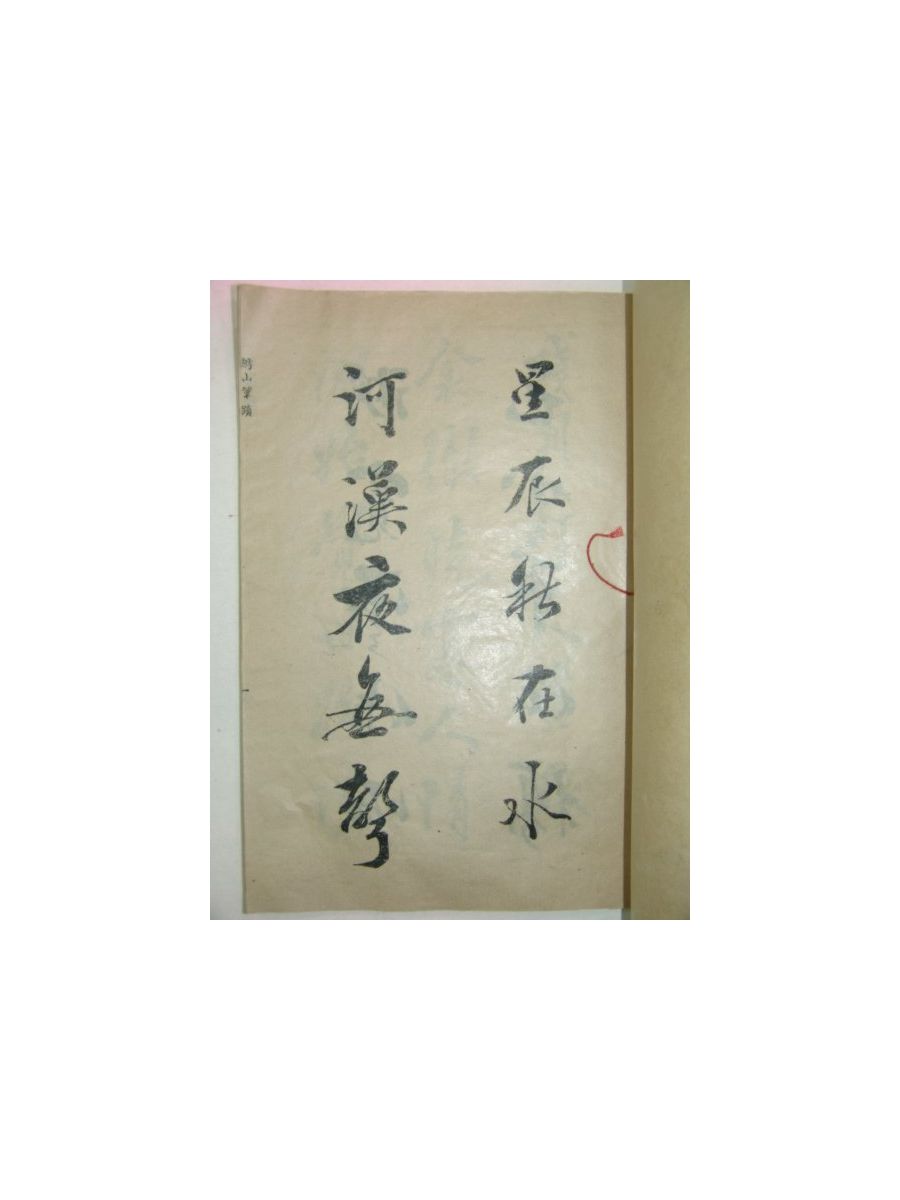 星辰秋在水
河漢夜無聲
山筆蹟